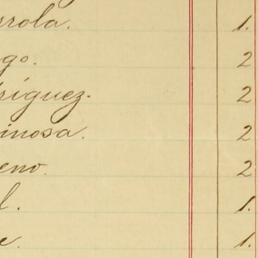 rrola. 1.
go. 2
ríguez. 2
inosa. 2
eno. 2
l. 1.
e. 1.